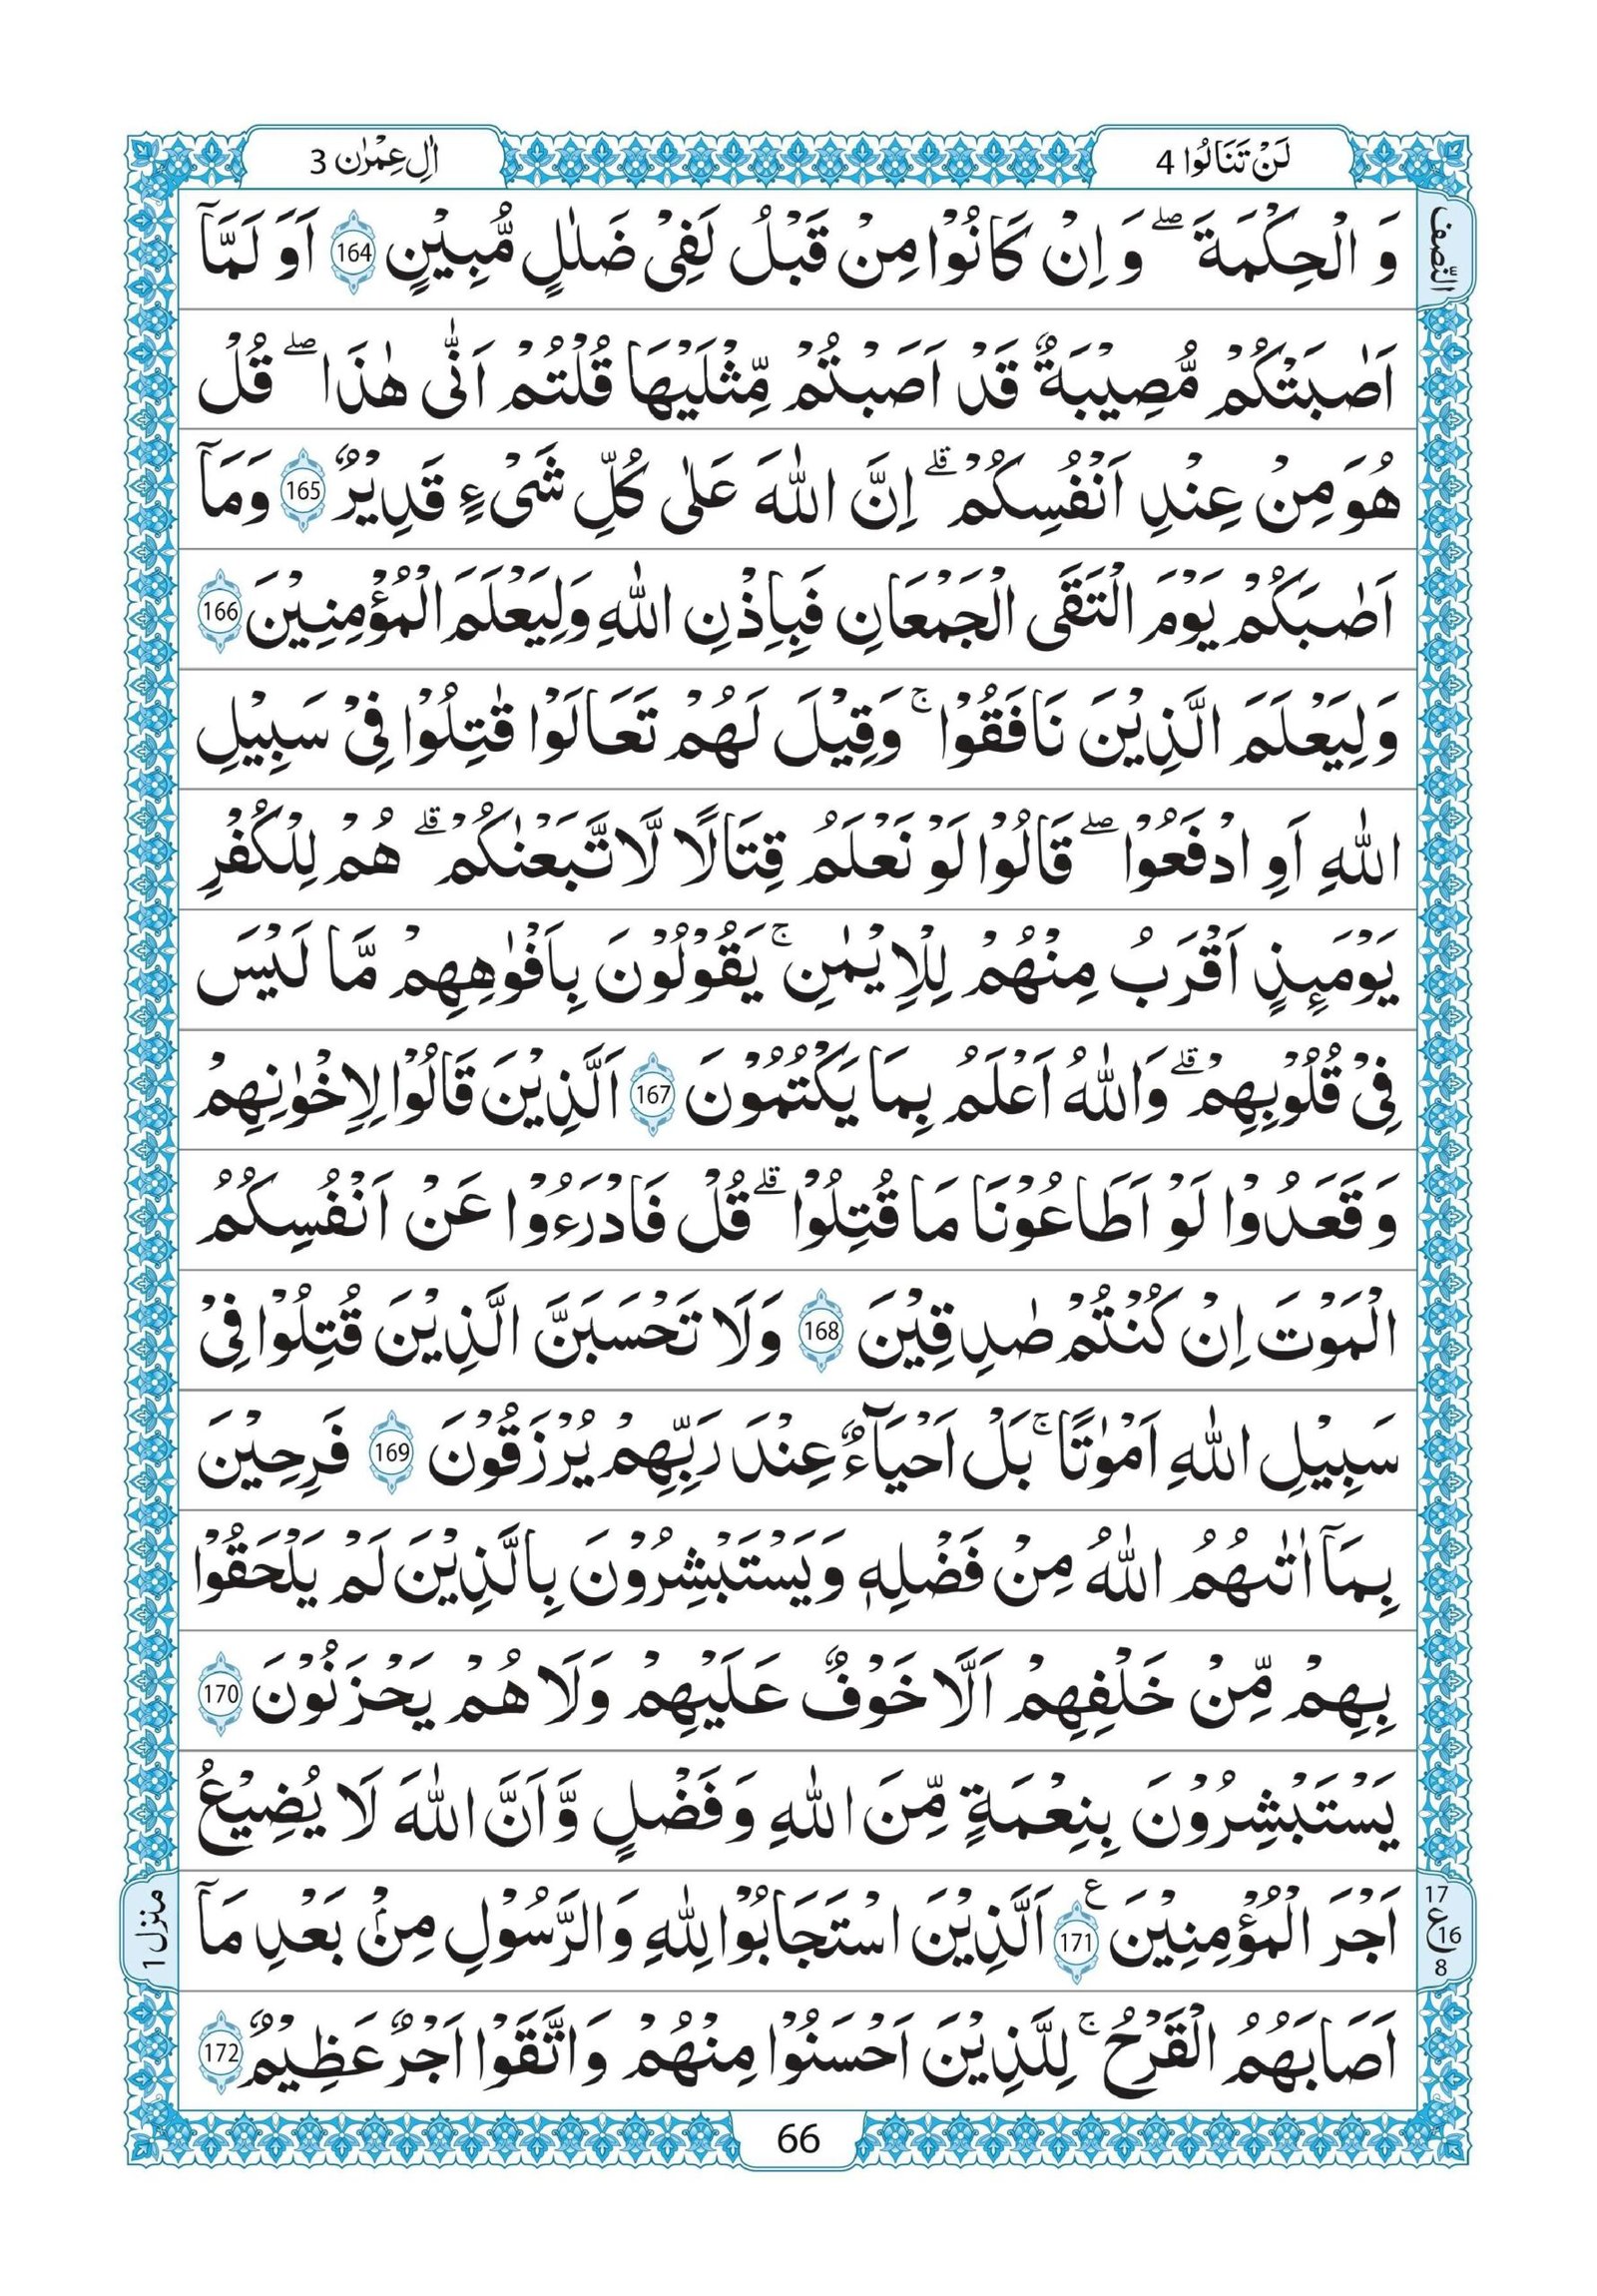 اٰلِ عِمْرٰن 3
لَنْ تَنَالُوا 4
النّصف
وَ الْحِكْمَةَ ۖ وَ اِنْ كَانُوْا مِنْ قَبْلُ لَفِيْ ضَلٰلٍ مُّبِيْنٍ 164 اَوَ لَمَّاۤ
اَصٰبَتْكُمْ مُّصِيْبَةٌ قَدْ اَصَبْتُمْ مِّثْلَيْهَا قُلْتُمْ اَنّٰى هٰذَا ۖ قُلْ
هُوَ مِنْ عِنْدِ اَنْفُسِكُمْ ۗ اِنَّ اللّٰهَ عَلٰى كُلِّ شَيْءٍ قَدِيْرٌ 165 وَمَاۤ
اَصٰبَكُمْ يَوْمَ الْتَقَى الْجَمْعَانِ فَبِاِذْنِ اللّٰهِ وَلِيَعْلَمَ الْمُؤْمِنِيْنَ 166
وَلِيَعْلَمَ الَّذِيْنَ نَافَقُوْا ۚ وَقِيْلَ لَهُمْ تَعَالَوْا قٰتِلُوْا فِيْ سَبِيْلِ
اللّٰهِ اَوِ ادْفَعُوْا ۖ قَالُوْا لَوْ نَعْلَمُ قِتَالًا لَّا تَّبَعْنٰكُمْ ۗ هُمْ لِلْكُفْرِ
يَوْمَىِٕذٍ اَقْرَبُ مِنْهُمْ لِلْاِيْمٰنِ ۚ يَقُوْلُوْنَ بِاَفْوٰهِهِمْ مَّا لَيْسَ
فِيْ قُلُوْبِهِمْ ۗ وَاللّٰهُ اَعْلَمُ بِمَا يَكْتُمُوْنَ 167 اَلَّذِيْنَ قَالُوْا لِاِخْوٰنِهِمْ
وَ قَعَدُوْا لَوْ اَطَاعُوْنَا مَا قُتِلُوْا ۗ قُلْ فَادْرَءُوْا عَنْ اَنْفُسِكُمُ
الْمَوْتَ اِنْ كُنْتُمْ صٰدِقِيْنَ 168 وَلَا تَحْسَبَنَّ الَّذِيْنَ قُتِلُوْا فِيْ
سَبِيْلِ اللّٰهِ اَمْوٰتًا ۚ بَلْ اَحْيَآءٌ عِنْدَ رَبِّهِمْ يُرْزَقُوْنَ 169 فَرِحِيْنَ
بِمَاۤ اٰتٰىهُمُ اللّٰهُ مِنْ فَضْلِهٖ وَيَسْتَبْشِرُوْنَ بِالَّذِيْنَ لَمْ يَلْحَقُوْا
بِهِمْ مِّنْ خَلْفِهِمْ اَلَّا خَوْفٌ عَلَيْهِمْ وَلَا هُمْ يَحْزَنُوْنَ 170
يَسْتَبْشِرُوْنَ بِنِعْمَةٍ مِّنَ اللّٰهِ وَفَضْلٍ وَّاَنَّ اللّٰهَ لَا يُضِيْعُ
اَجْرَ الْمُؤْمِنِيْنَ ع 171 اَلَّذِيْنَ اسْتَجَابُوْا لِلّٰهِ وَالرَّسُوْلِ مِنْۢ بَعْدِ مَاۤ
17
ع 16
8
منزل 1
اَصَابَهُمُ الْقَرْحُ ۚ لِلَّذِيْنَ اَحْسَنُوْا مِنْهُمْ وَاتَّقَوْا اَجْرٌ عَظِيْمٌ 172
66